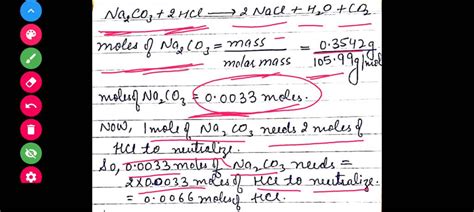 Na₂CO₃ + 2HCl → 2 NaCl + H₂O + CO₂
moles of Na₂CO₃ = mass / molar mass = 0.3542g / 105.99g/mol
moles of Na₂CO₃ = 0.0033 moles.
Now, 1 mole of Na₂CO₃ needs 2 moles of
HCl to neutralize.
So, 0.0033 moles of Na₂CO₃ needs =
2×0.0033 moles of HCl to neutralize.
= 0.0066 moles of HCl.